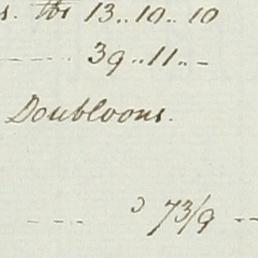 s. 13..10..10
----- 39..11..-
Doubloons.
---- 73/9 --